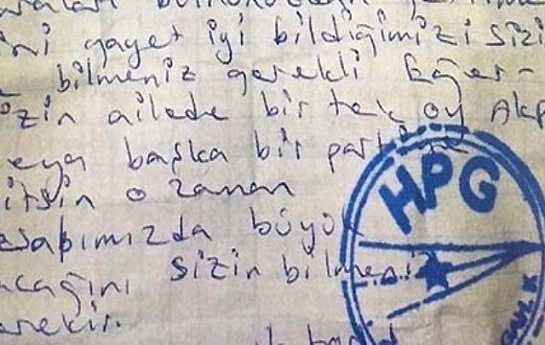 ini gayet iyi bildiğimizi sizi
bilmeniz gerekli Eğer-
izin ailede bir tek oy Akp
eya başka bir partiye
itsin o zaman
esabımızda büyük
acağını sizin bilmeni
erekir.
HPG